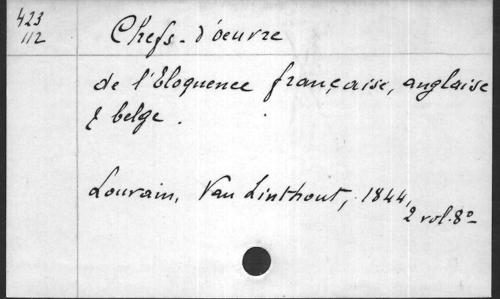 423
112
Chefs-d'oeuvre
de l'Eloquence française, anglaise
& belge.
Louvain, Van Linthout, 1844,
2 vol. 8º